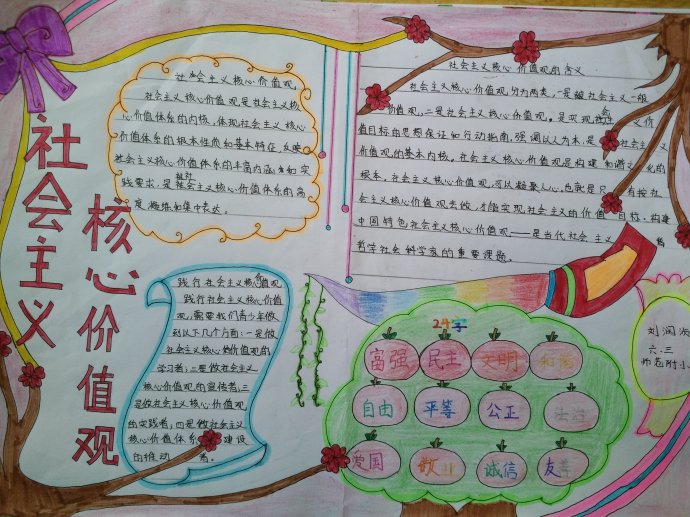 社会主义
核心价值观
社会主义核心价值观
社会主义核心价值观是社会主义核
心价值体系的内核,体现社会主义核心
价值体系的根本性质和基本特征,反映
社会主义核心价值体系的丰富内涵和实
践要求,是社会主义核心价值体系的高
度凝练和集中表达。
社会主义核心价值观的含义
社会主义核心价值观,分为两类,一是超社会主义一般
价值观,二是社会主义核心价值观。是实现社会主义价
值目标的思想保证和行动指南,强调以人为本,是社会主义
价值观的基本内核。社会主义核心价值观是构建和谐文化的
根本,社会主义核心价值观,可以凝聚人心,也就是只有按社
会主义核心价值观去做,才能实现社会主义的价值目标。构建
中国特色社会主义核心价值观——是当代社会主义
哲学社会科学家的重要课题。
践行社会主义核心价值观
践行社会主义核心价值
观,需要我们青少年做
到以下几个方面:一是做
社会主义核心价值观的
学习者;二是做社会主义
核心价值观的宣传者;三
是做社会主义核心价值观
的实践者,四是做社会主义
核心价值体系建设
的推动者。
24字
富强 民主 文明 和谐
自由 平等 公正 法治
爱国 敬业 诚信 友善
刘润
六.三
师范附小